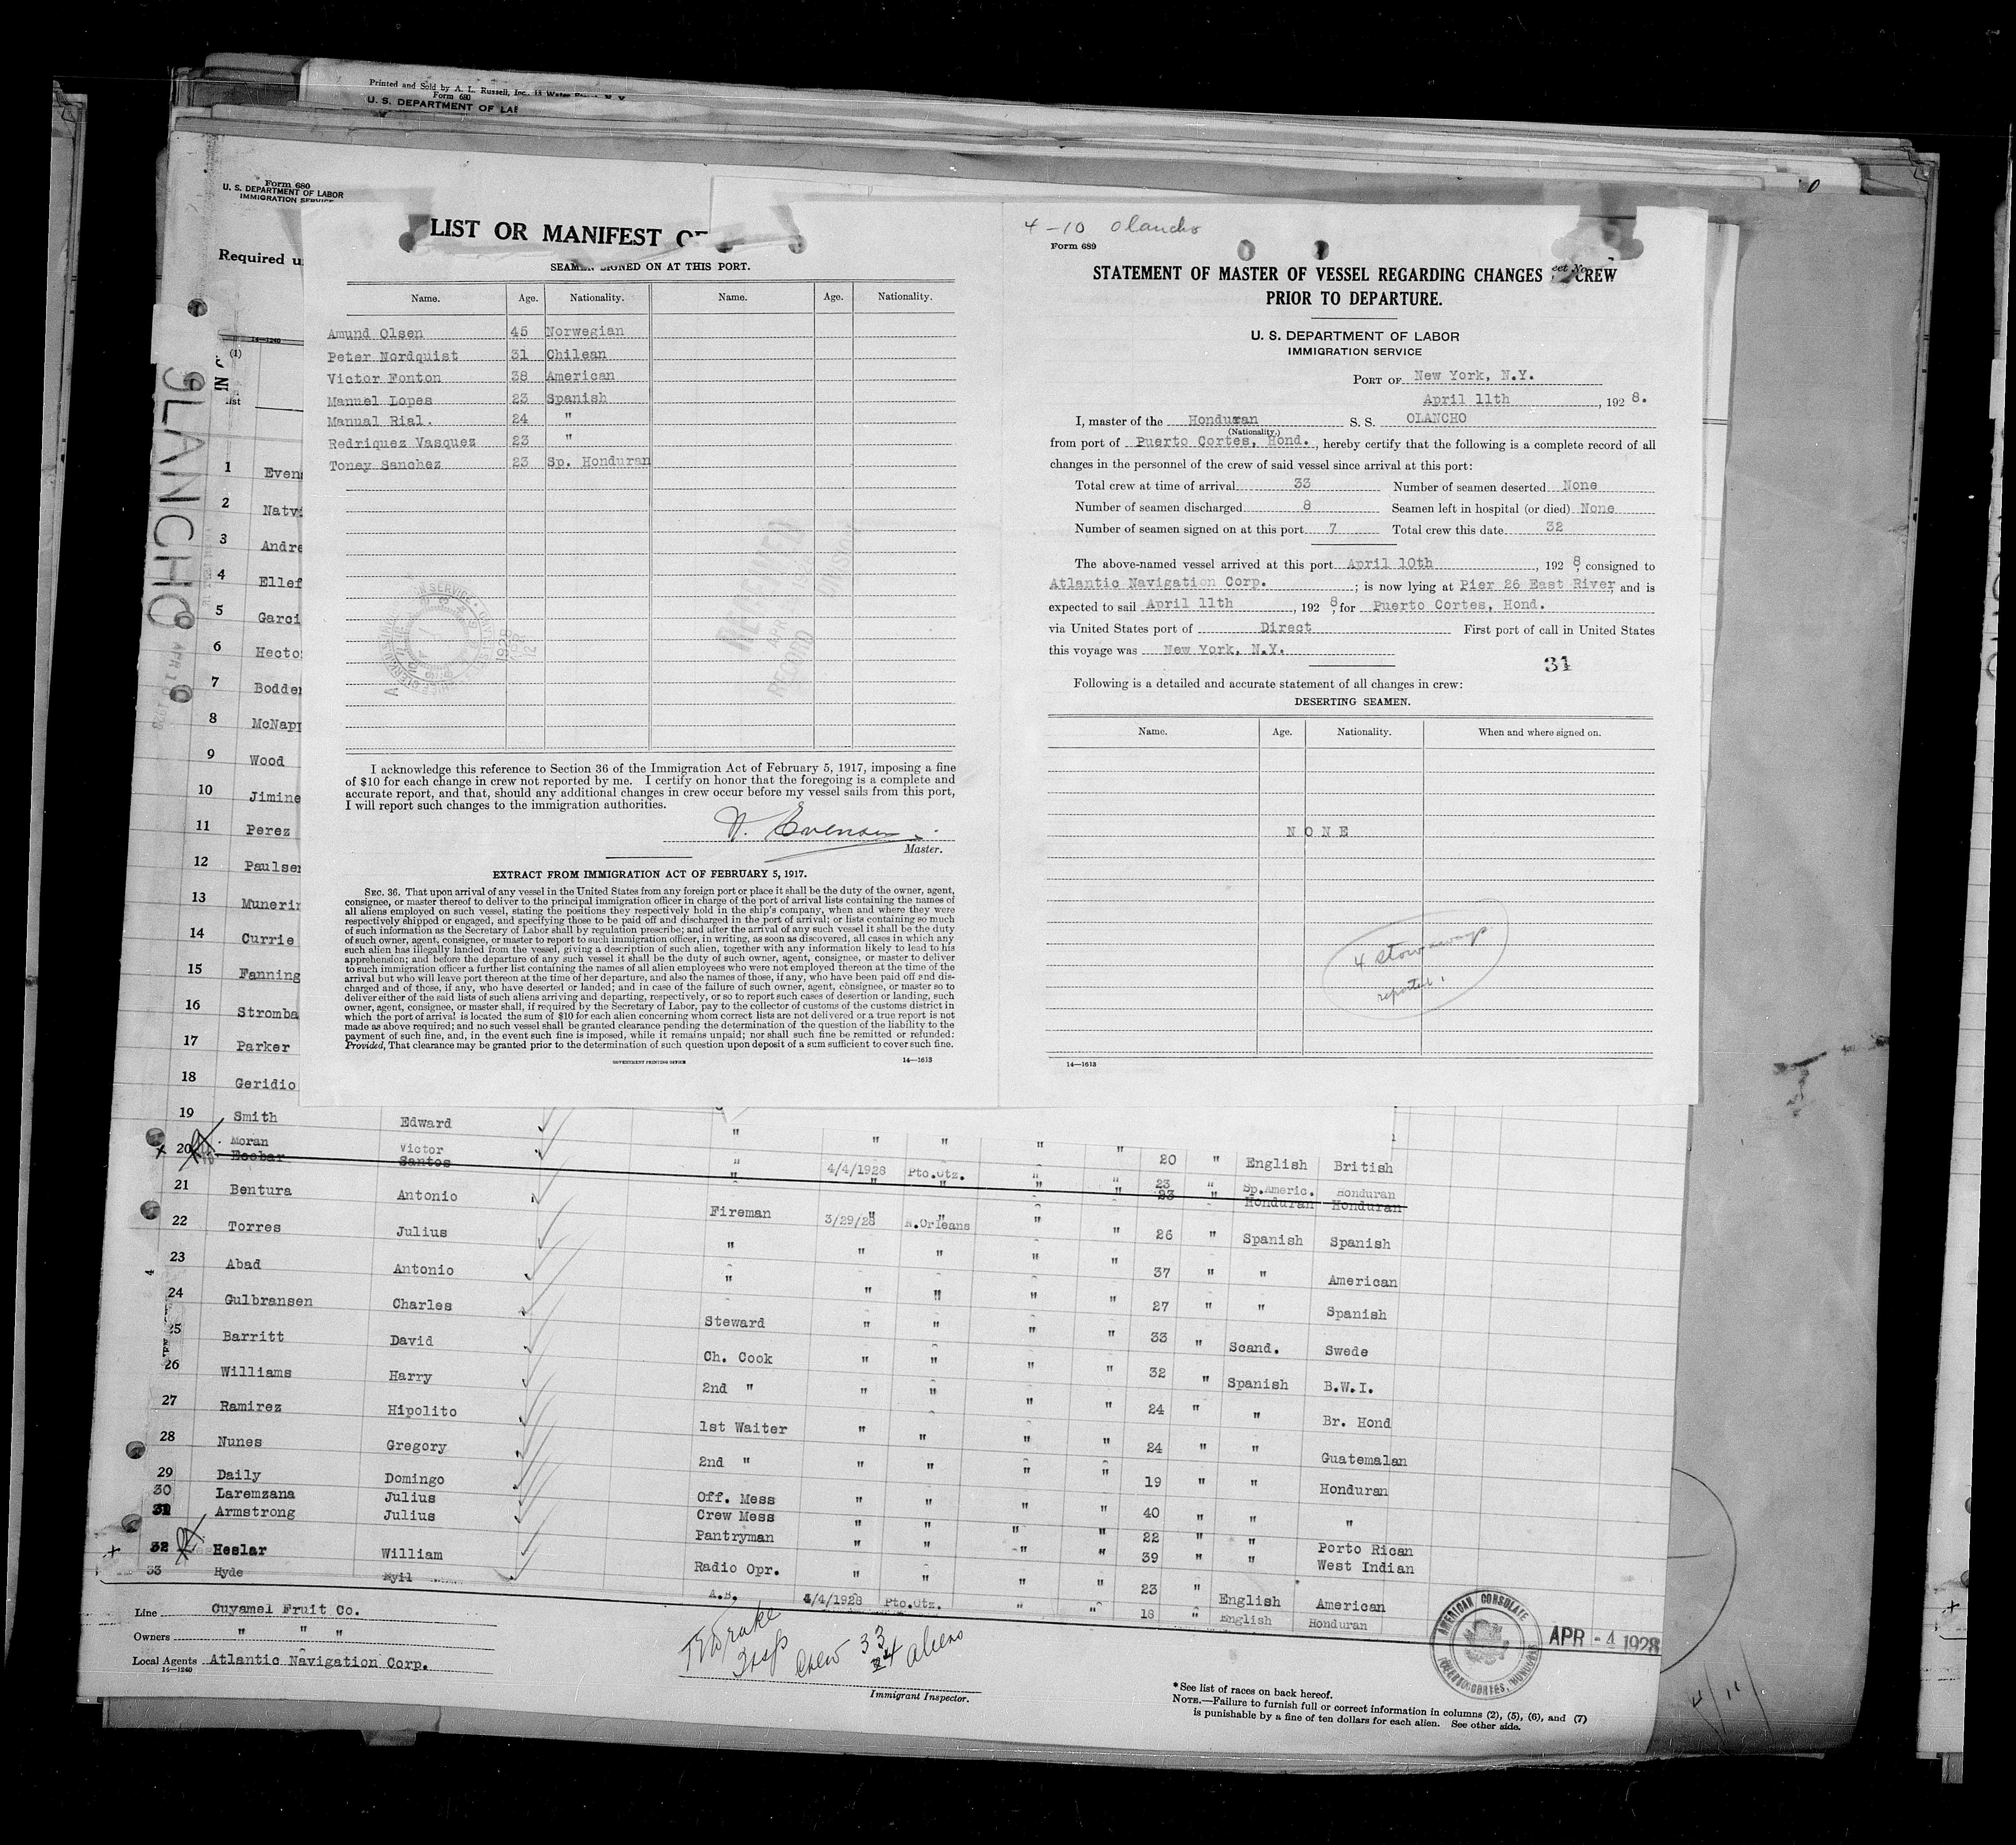 Printed and Sold by A. L. Russell, Inc.
Form 680
U. S. DEPARTMENT OF LAB
Form 680
U. S. DEPARTMENT OF LABOR
IMMIGRATION SERVICE
Required u
LIST OR MANIFEST OF
SEAMEN SIGNED ON AT THIS PORT.
Name. Age. Nationality. Name. Age. Nationality.
Amund Olsen 45 Norwegian
Peter Nordquist 31 Chilean
Victor Fonton 38 American
Manuel Lopes 23 Spanish
Manual Rial. 24 "
Redriquez Vasquez 23 "
Toney Sanchez 23 Sp. Honduran
I acknowledge this reference to Section 36 of the Immigration Act of February 5, 1917, imposing a fine
of $10 for each change in crew not reported by me. I certify on honor that the foregoing is a complete and
accurate report, and that, should any additional changes in crew occur before my vessel sails from this port,
I will report such changes to the immigration authorities.
N. Evensen
Master.
EXTRACT FROM IMMIGRATION ACT OF FEBRUARY 5, 1917.
SEC. 36. That upon arrival of any vessel in the United States from any foreign port or place it shall be the duty of the owner, agent,
consignee, or master thereof to deliver to the principal immigration officer in charge of the port of arrival lists containing the names of
all aliens employed on such vessel, stating the positions they respectively hold in the ship's company, when and where they were
respectively shipped or engaged, and specifying those to be paid off and discharged in the port of arrival; or lists containing so much
of such information as the Secretary of Labor shall by regulation prescribe; and after the arrival of any such vessel it shall be the duty
of such owner, agent, consignee, or master to report to such immigration officer, in writing, as soon as discovered, all cases in which any
such alien has illegally landed from the vessel, giving a description of such alien, together with any information likely to lead to his
apprehension; and before the departure of any such vessel it shall be the duty of such owner, agent, consignee, or master to deliver
to such immigration officer a further list containing the names of all alien employees who were not employed thereon at the time of the
arrival but who will leave port thereon at the time of her departure, and also the names of those, if any, who have been paid off and dis-
charged and of those, if any, who have deserted or landed; and in case of the failure of such owner, agent, consignee, or master so to
deliver either of the said lists of such aliens arriving and departing, respectively, or so to report such cases of desertion or landing, such
owner, agent, consignee, or master shall, if required by the Secretary of Labor, pay to the collector of customs of the customs district in
which the port of arrival is located the sum of $10 for each alien concerning whom correct lists are not delivered or a true report is not
made as above required; and no such vessel shall be granted clearance pending the determination of the question of the liability to the
payment of such fine, and, in the event such fine is imposed, while it remains unpaid; nor shall such fine be remitted or refunded:
Provided, That clearance may be granted prior to the determination of such question upon deposit of a sum sufficient to cover such fine.
GOVERNMENT PRINTING OFFICE 14—1613
4-10 Olancho
Form 689
STATEMENT OF MASTER OF VESSEL REGARDING CHANGES CREW
PRIOR TO DEPARTURE.
U. S. DEPARTMENT OF LABOR
IMMIGRATION SERVICE
PORT OF New York, N.Y.
April 11th, 1928.
I, master of the Honduran S. S. OLANCHO
(Nationality.)
from port of Puerto Cortes, Hond., hereby certify that the following is a complete record of all
changes in the personnel of the crew of said vessel since arrival at this port:
Total crew at time of arrival 33 Number of seamen deserted None
Number of seamen discharged 8 Seamen left in hospital (or died) None
Number of seamen signed on at this port 7 Total crew this date 32
The above-named vessel arrived at this port April 10th, 1928, consigned to
Atlantic Navigation Corp.; is now lying at Pier 26 East River and is
expected to sail April 11th, 1928, for Puerto Cortes, Hond.
via United States port of Direct First port of call in United States
this voyage was New York, N.Y.
31
Following is a detailed and accurate statement of all changes in crew:
DESERTING SEAMEN.
Name. Age. Nationality. When and where signed on.
NONE
4 stowaways
reported
14—1613
OLANCHO
1 Even
2 Natvi
3 Andre
4 Ellef
5 Garci
6 Hecto
7 Bodden
8 McNapp
9 Wood
10 Jimine
11 Perez
12 Paulsen
13 Munerin
14 Currie
15 Fanning
16 Stromba
17 Parker
18 Geridio
19 Smith Edward " " " " " 20 " English British
20 Moran Victor " 4/4/1928 Pto.Ctz. " " 23 " Sp.Americ. Honduran
Escobar Santos " " " " " 23 " Honduran Honduran
21 Bentura Antonio Fireman 3/29/28 N.Orleans " " 26 " Spanish Spanish
22 Torres Julius " " " " " 37 " " American
23 Abad Antonio " " " " " 27 " " Spanish
24 Gulbransen Charles Steward " " " " 33 " Scand. Swede
25 Barritt David Ch. Cook " " " " 32 " Spanish B.W.I.
26 Williams Harry 2nd " " " " " 24 " " Br. Hond
27 Ramirez Hipolito 1st Waiter " " " " 24 " " Guatemalan
28 Nunes Gregory 2nd " " " " " 19 " " Honduran
29 Daily Domingo Off. Mess " " " " 40 " " "
30 Laremzana Julius Crew Mess " " " " 22 " " Porto Rican
31 Armstrong Julius Pantryman " " " " 39 " " West Indian
32 Heslar William Radio Opr. " " " " 23 " English American
33 Hyde Nyil A.B. 4/4/1928 Pto.Ctz. " " 18 " English Honduran
Line Cuyamel Fruit Co.
Owners " " "
Local Agents Atlantic Navigation Corp.
14—1240
Crew 33
24 aliens
Immigrant Inspector.
AMERICAN CONSULATE
PUERTO CORTES, HONDURAS
APR - 4 1928
*See list of races on back hereof.
NOTE.—Failure to furnish full or correct information in columns (2), (5), (6), and (7)
is punishable by a fine of ten dollars for each alien. See other side.
4/11